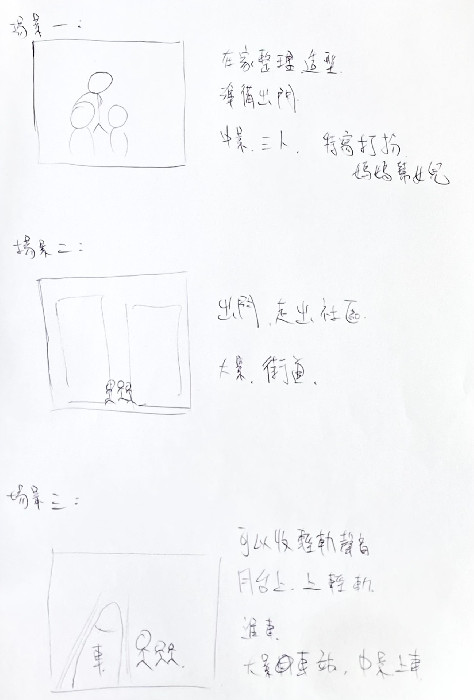 場景一：
在家整理造型
準備出門
中景. 三人. 特寫打扮
媽媽幫女兒
場景二：
出門, 走出社區.
大景. 街道.
場景三：
可以收輕軌聲音
月台上. 上輕軌
進車
大景車站, 中景上車
車